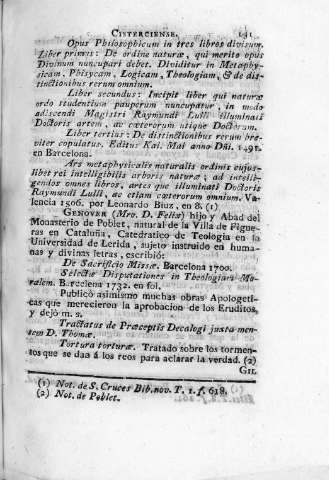 CISTERCIENSE. 191
Opus Philosophicum in tres libros divisum.
Liber primus: De ordine naturæ, qui merito opus
Divinum nuncupari debet. Dividitur in Metaphy-
sicam. Phisycam, Logicam, Theologiam, & de dis-
tinctionibus rerum omnium.
Liber secundus: Incipit liber qui naturæ
ordo studentium pauperum nuncupatur, in modo
adiscendi Magistri Raymundi Lulli illuminati
Doctoris artem, ac cæterorum utique Doctorum.
Liber tertius: De distinctionibus rerum bre-
viter copulatus. Editus Kal. Mai anno Dñi. 1491.
en Barcelona.
Ars metaphysicalis naturalis ordinis cujus-
libet rei intelligibilis arboris naturæ; ad intelli-
gendos omnes libros, artes que illuminati Doctoris
Raymundi Lulli, ac etiam cæterorum omnium. Va-
lencia 1506. por Leonardo Biuz, en 8. (1)
GENOVER (Mro. D. Felix) hijo y Abad del
Monasterio de Poblet, natural de la Villa de Figue-
ras en Cataluña, Catedratico de Teologia en la
Universidad de Lerida, sujeto instruido en huma-
nas y divinas letras, escribió:
De Sacrificio Missæ. Barcelona 1700.
Selectæ Disputationes in Theologiam Mo-
ralem. Barcelona 1732. en fol.
Publicó asimismo muchas obras Apologeti-
cas que merecieron la aprobacion de los Eruditos,
y dejó m. s.
Tractatus de Præceptis Decalogi justa men-
tem D. Thomæ.
Tortura torturæ. Tratado sobre los tormen-
tos que se dan á los reos para aclarar la verdad. (2)
GIL
(1) Not. de S. Cruces Bib. nov. T. 1. f. 618.
(2) Not. de Poblet.